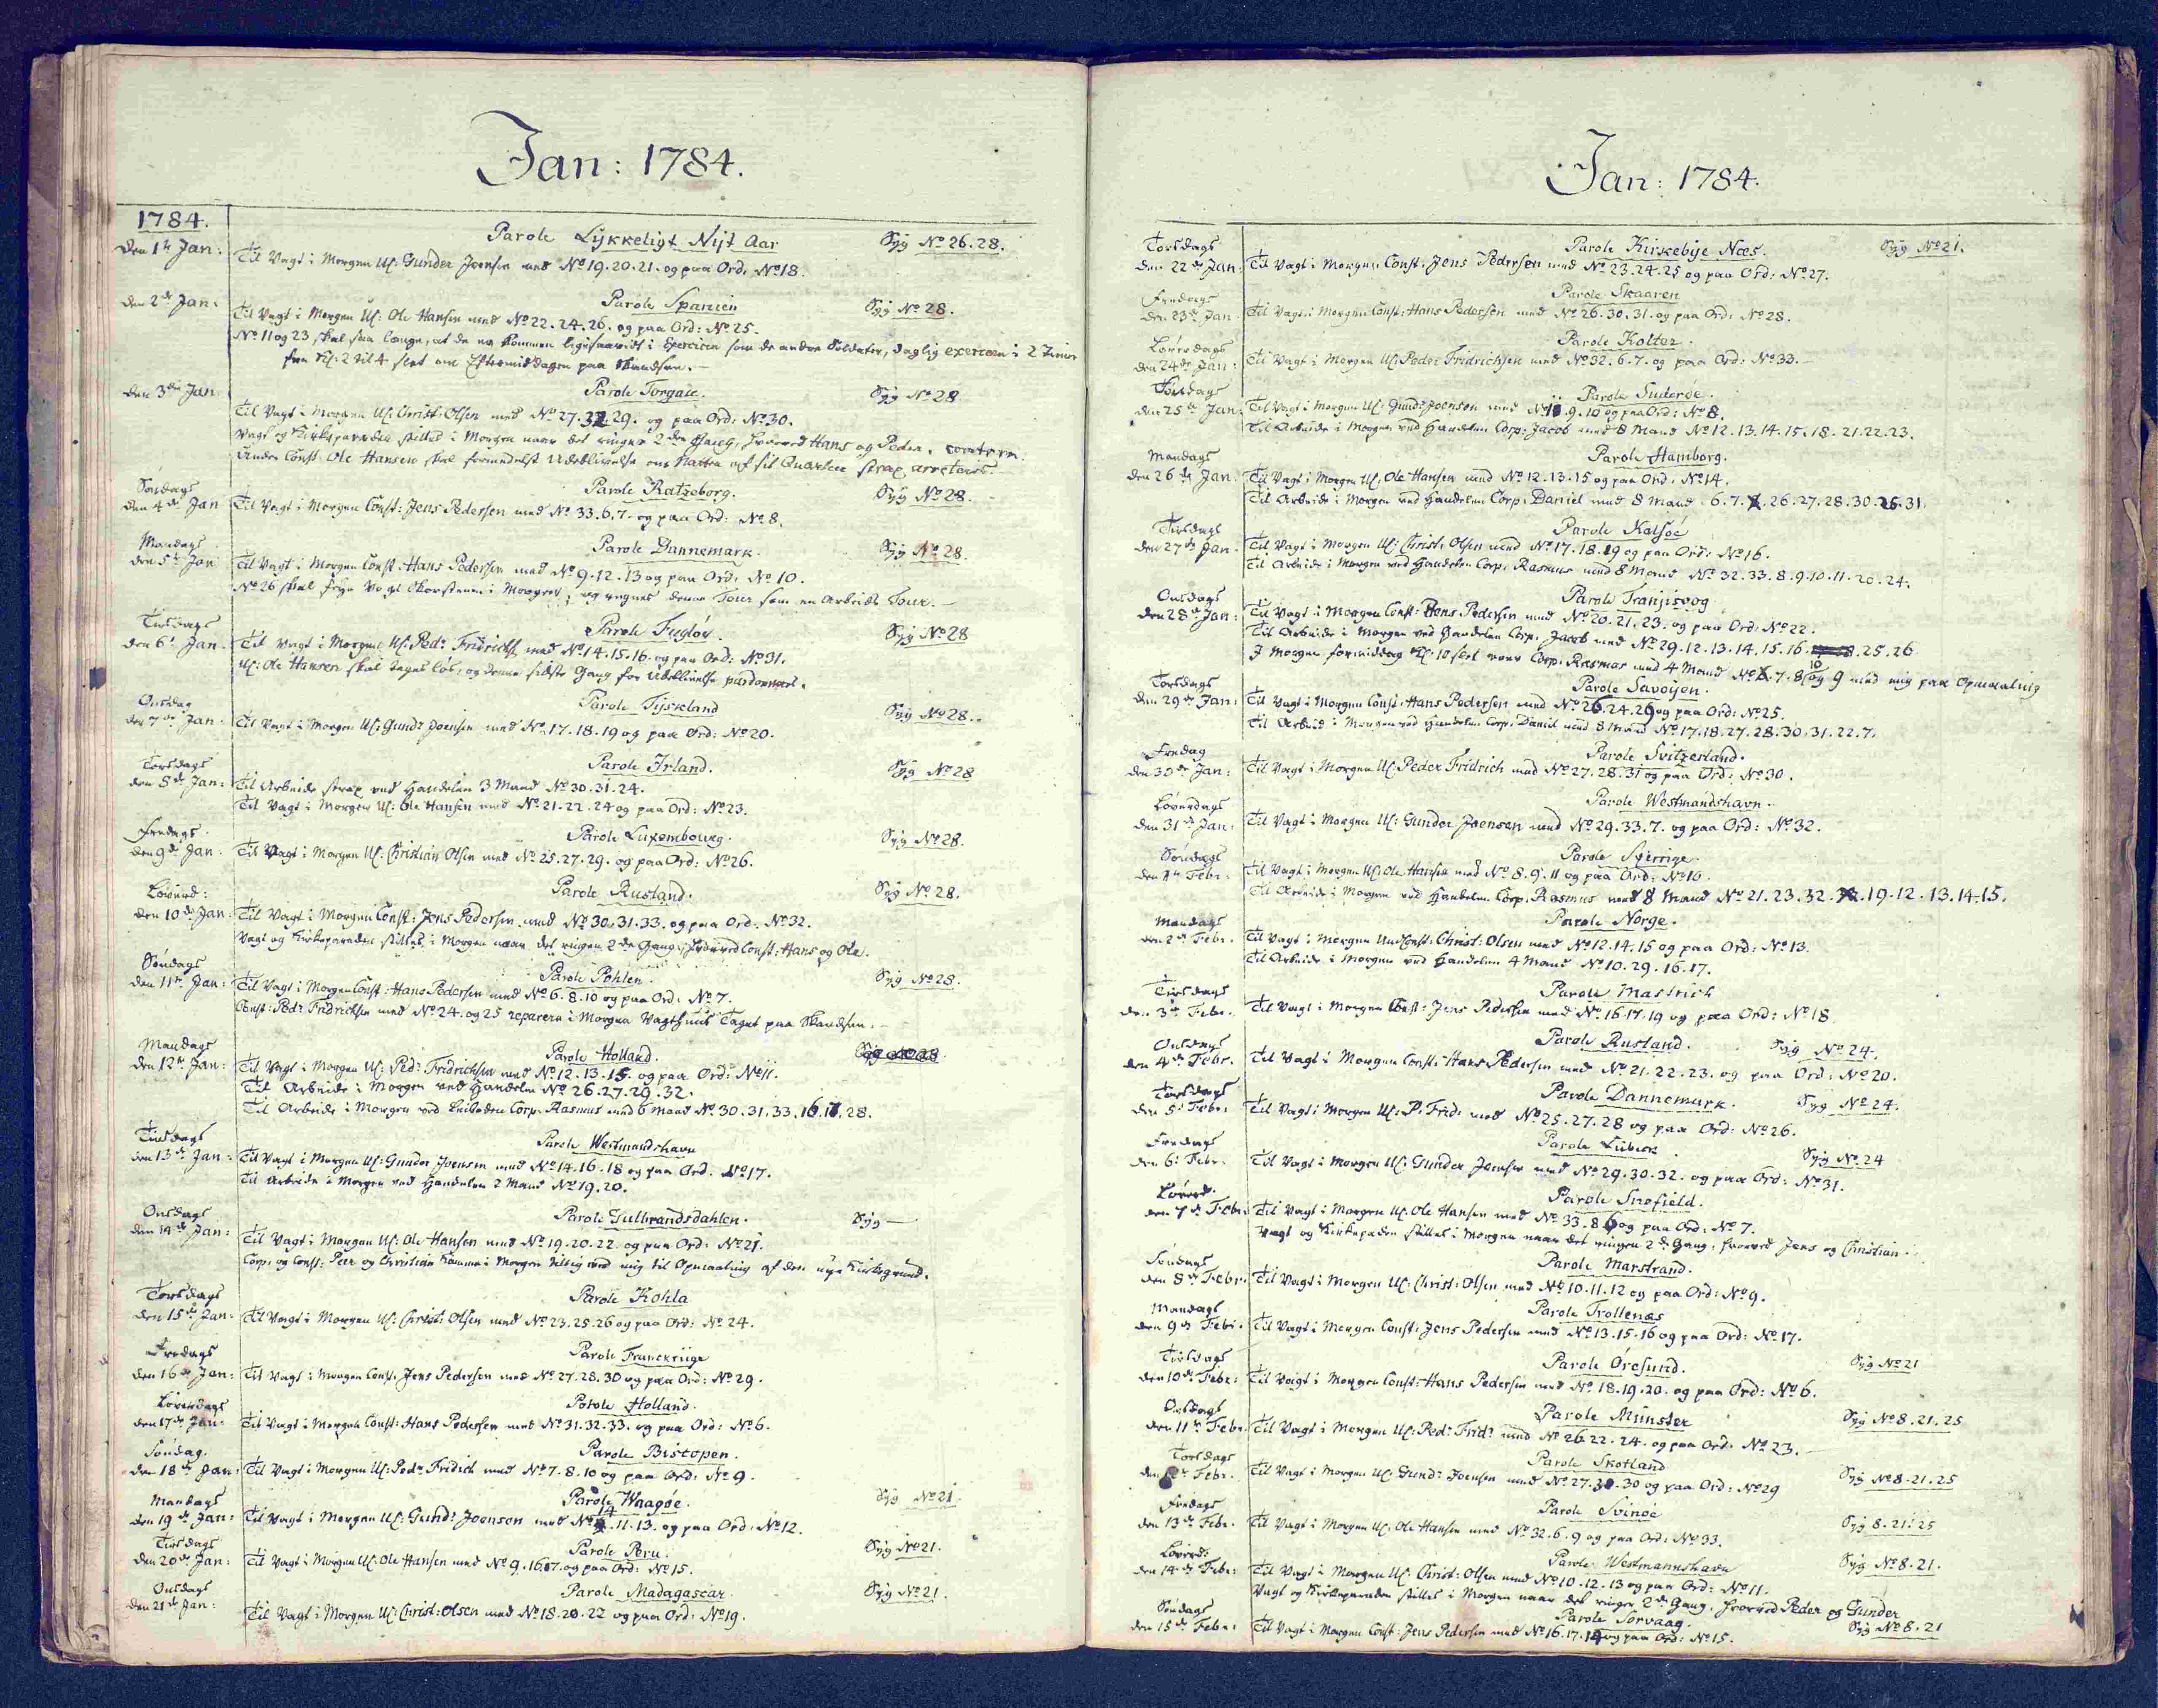 Jan: 1784.
1784.
Parole Lykkeligt Nyt Aar Syg No 26.28.
Den 1te Jan: Til Vagt i Morgen Uf: Gunder Joensen med No 19.20.21. og paa Ord: No 18.
Den 2de Jan: Parole Spanien Syg No 28.
Til Vagt i Morgen Uf: Ole Hansen med No 22.24.26. og paa Ord: No 25.
No 11 og 23 skal saa længe, at de er kommen ligesaavidt i Exercicen som de andre Soldater, daglig exercere i 2 Timer
fra Kl: 2 til 4 slet om Eftermiddagen paa Skandsen.
Den 3die Jan Parole Torgau. Syg No 28
Til Vagt i Morgen Uf: Christ: Olsen med No 27. 29. og paa Ord: No 30.
Vagt og Kirkeparaden stilles i Morgen naar det ringer 2den Gang, hvorved Hans og Peder.
Under Const: Ole Hansen skal formedelst Udeblivelse om Natten af sit Quarteer strax arresteres
Søndags Parole Ratzeborg. Syg No 28.
den 4de Jan Til Vagt i Morgen Const: Jens Pedersen med No 33.6.7. og paa Ord: No 8.
Mandags Parole Dannemark. Syg No 28.
den 5te Jan Til Vagt i Morgen Const: Hans Pedersen med No 9.12.13 og paa Ord: No 10.
No 26 skal feye Vagt Skorstenen i Morgen, og regnes denne Tour som en Arbeids Tour.
Tirsdags Parole Fugløe. Syg No 28
den 6t Jan Til Vagt i Morgen Uf: Pedr Fridrichs med No 14.15.16. og paa Ord: No 31.
Uf: Ole Hansen skal tages løs, og denne sidste Gang for Udeblivelse pardonnert.
Onsdag Parole Tyskland Syg No 28.
den 7de Jan Til Vagt i Morgen Uf: Gundr Joensen med No 17.18.19 og paa Ord: No 20.
Torsdags Parole Irland. Syg No 28
den 8de Jan: Til Arbeide strax ved Handelen 3 Mand No 30.31.24.
Til Vagt i Morgen Uf: Ole Hansen med No 21.22.24 og paa Ord: No 23.
Fredags Parole Luxembourg. Syg No 28.
den 9de Jan Til Vagt i Morgen Uf: Christian Olsen med No 25.27.29. og paa Ord: No 26.
Løverd: Parole Rusland. Syg No 28.
den 10de Jan Til Vagt i Morgen Const: Jens Pedersen med No 30.31.33. og paa Ord: No 32.
Vagt og Kirkeparaden stilles i Morgen naar det ringer 2de Gang, hvorved Const: Hans og Ole.
Søndags Parole Pohlen. Syg No 28.
den 11te Jan: Til Vagt i Morgen Const: Hans Pedersen med No 6.8.10 og paa Ord: No 7.
Const: Pedr Fridrichsen med No 24. og 25 reparere i Morgen Vagthuus Taget paa Skandsen.
Mandags Parole Holland.
den 12te Jan: Til Vagt i Morgen Uf: Pedr Fridrichsen med No 12.13.15. og paa Ord: No 11.
Til Arbeide i Morgen ved Handelen No 26.27.29.32.
Til Arbeide i Morgen ved Corp: Rasmus med 6 Mand No 30.31.33.16.17.28.
Tirsdags Parole Westmandshavn
den 13de Jan: Til Vagt i Morgen Uf: Gunder Joensen med No 14.16.18 og paa Ord: No 17.
Til Arbeide i Morgen ved Handelen 2 Mand No 19.20.
Onsdags Parole Gulbrandsdahlen. Syg —
den 14de Jan: Til Vagt i Morgen Uf: Ole Hansen med No 19.20.22. og paa Ord: No 21.
Corp: og Const: Peer og Christian komme i Morgen tillig med mig til Opmaaling af den nye Kirkegrund.
Torsdags Parole Kohla
den 15de Jan: Til Vagt i Morgen Uf: Christ: Olsen med No 23.25.26 og paa Ord: No 24.
Fredags Parole Franckriige
den 16de Jan: Til Vagt i Morgen Const: Jens Pedersen med No 27.28.30 og paa Ord: No 29.
Løverdags Parole Holland.
den 17de Jan: Til Vagt i Morgen Const: Hans Pedersen med No 31.32.33. og paa Ord: No 6.
Søndag. Parole Biscopen.
den 18de Jan: Til Vagt i Morgen Uf: Pedr Fridich med No 7.8.10 og paa Ord: No 9.
Mandags Parole Waagøe. Syg No 21.
den 19de Jan: Til Vagt i Morgen Uf: Gundr Joensen med No 14.11.13. og paa Ord: No 12.
Tirsdags Parole Peru. Syg No 21.
den 20de Jan: Til Vagt i Morgen Uf: Ole Hansen med No 9.16.17. og paa Ord: No 15.
Onsdags Parole Madagascar. Syg No 21.
den 21de Jan: Til Vagt i Morgen Uf: Christ: Olsen med No 18.20.22 og paa Ord: No 19.
Jan: 1784.
Torsdags Parole Kirkebye Næs. Syg No 21.
den 22de Jan: Til Vagt i Morgen Const: Jens Pedersen med No 23.24.25 og paa Ord: No 27.
Fredags Parole Skaaren
den 23de Jan Til Vagt i Morgen Const: Hans Pedersen med No 26.30.31. og paa Ord: No 28.
Løverdags Parole Kolter.
den 24de Jan: Til Vagt i Morgen Uf: Peder Fridrichsen med No 32.6.7. og paa Ord: No 33.
Søndags Parole Suderøe.
den 25de Jan Til Vagt i Morgen Uf: Gundr Joensen med No 9.10 og paa Ord: No 8.
Til Arbeide i Morgen ved Handelen Corp: Jacob med 8 Mand No 12.13.14.15.18.21.22.23.
Mandags Parole Hamborg.
den 26de Jan: Til Vagt i Morgen Uf: Ole Hansen med No 12.13.15 og paa Ord: No 14.
Til Arbeide i Morgen ved Handelen Corp: Daniel med 8 Mand 6.7. 26.27.28.30. 31.
Tirsdags Parole Kalsøe
den 27de Jan Til Vagt i Morgen Uf: Christ: Olsen med No 17.18.19 og paa Ord: No 16.
Til Arbeide i Morgen ved Handelen Corp: Rasmus med 8 Mand No 32.33.8.9.10.11.20.24.
Onsdags Parole Tranjisvog
den 28de Jan: Til Vagt i Morgen Const: Jens Pedersen med No 20.21.23. og paa Ord: No 22.
Til Arbeide i Morgen ved Handelen Corp: Jacob med No 29.12.13.14.15.16. 25.26
I Morgen formiddag Kl: 10 slet Corp: Rasmus med 4 Mand No 7.8. 10 og 9 med mig paa Opmaaling
Torsdags Parole Savoyen.
den 29de Jan: Til Vagt i Morgen Const: Hans Pedersen med No 26.24.29 og paa Ord: No 25.
Til Arbeid i Morgen ved Handelen Corp: Daniel med 8 Mand No 17.18.27.28.30.31.22.7.
Fredag Parole Svitzerland.
den 30de Jan: Til Vagt i Morgen Uf: Peder Fridrich med No 27.28.31 og paa Ord: No 30.
Løverdags Parole Westmandshavn.
den 31te Jan: Til Vagt i Morgen Uf: Gunder Joensen med No 29.33.7. og paa Ord: No 32.
Søndags Parole Sverrige.
den 1te Febr: Til Vagt i Morgen Uf: Ole Hansen med No 8.9.11 og paa Ord: No 10.
Til Arbeide i Morgen ved Handelen Corp: Rasmus med 8 Mand No 21.23.32. 19.12.13.14.15.
Mandags Parole Norge.
den 2de Febr. Til Vagt i Morgen UndConst: Christ: Olsen med No 12.14.15 og paa Ord: No 13.
Til Arbeide i Morgen ved Handelen 4 Mand No 10.29.16.17.
Tirsdags Parole Mastrich
den 3de Febr. Til Vagt i Morgen Const: Jens Pedersen med No 16.17.19 og paa Ord: No 18
Onsdags Parole Rusland. Syg No 24.
den 4de Febr. Til Vagt i Morgen Const: Hans Pedersen med No 21.22.23. og paa Ord: No 20.
Torsdags Parole Dannemark. Syg No 24.
den 5t Febr: Til Vagt i Morgen Uf: P. Frid: med No 25.27.28 og paa Ord: No 26.
Fredags Parole Lübeck. Syg No 24
den 6t Febr. Til Vagt i Morgen Uf: Gunder Joensen med No 29.30.32. og paa Ord: No 31.
Løverd. Parole Snefield.
den 7de Febr: Til Vagt i Morgen Uf: Ole Hansen med No 33.8.6 og paa Ord: No 7.
Vagt og Kirkepaden stilles i Morgen naar det ringer 2de Gang, hvorved Jens og Christian.
Søndags Parole Marstrand.
den 8de Febr. Til Vagt i Morgen Uf: Christ: Olsen med No 10.11.12 og paa Ord: No 9.
Mandags Parole Trollenæs
den 9de Febr. Til Vagt i Morgen Const: Jens Pedersen med No 13.15.16 og paa Ord: No 17.
Tirsdags Parole Øresund. Syg No 21
den 10de Febr: Til Vagt i Morgen Const: Hans Pedersen med No 18.19.20. og paa Ord: No 6.
Onsdags Parole Münster Syg No 8.21.25
den 11te Febr. Til Vagt i Morgen Uf: Pedr Fridr med No 26.22.24. og paa Ord: No 23.
Torsdags Parole Skotland Syg No 8.21.25
den Febr. Til Vagt i Morgen Uf: Gundr Joensen med No 27. 30 og paa Ord: No 29
Fredags Parole Svinøe Syg 8.21.25
den 13de Febr. Til Vagt i Morgen Uf: Ole Hansen med No 32.6.9 og paa Ord: No 33.
Løverd: Parole Westmannshavn Syg No 8.21.
den 14de Febr: Til Vagt i Morgen Uf: Christ: Olsen med No 10.12.13 og paa Ord: No 11.
Vagt og Kirkeparaden stilles i Morgen naar det ringer 2de Gang, hvorved Peder og Gunder
Søndags Parole Sorvaag. Syg No 8.21
den 15de Febr: Til Vagt i Morgen Const: Jens Pedersen med No 16.17.14 og paa Ord: No 15.